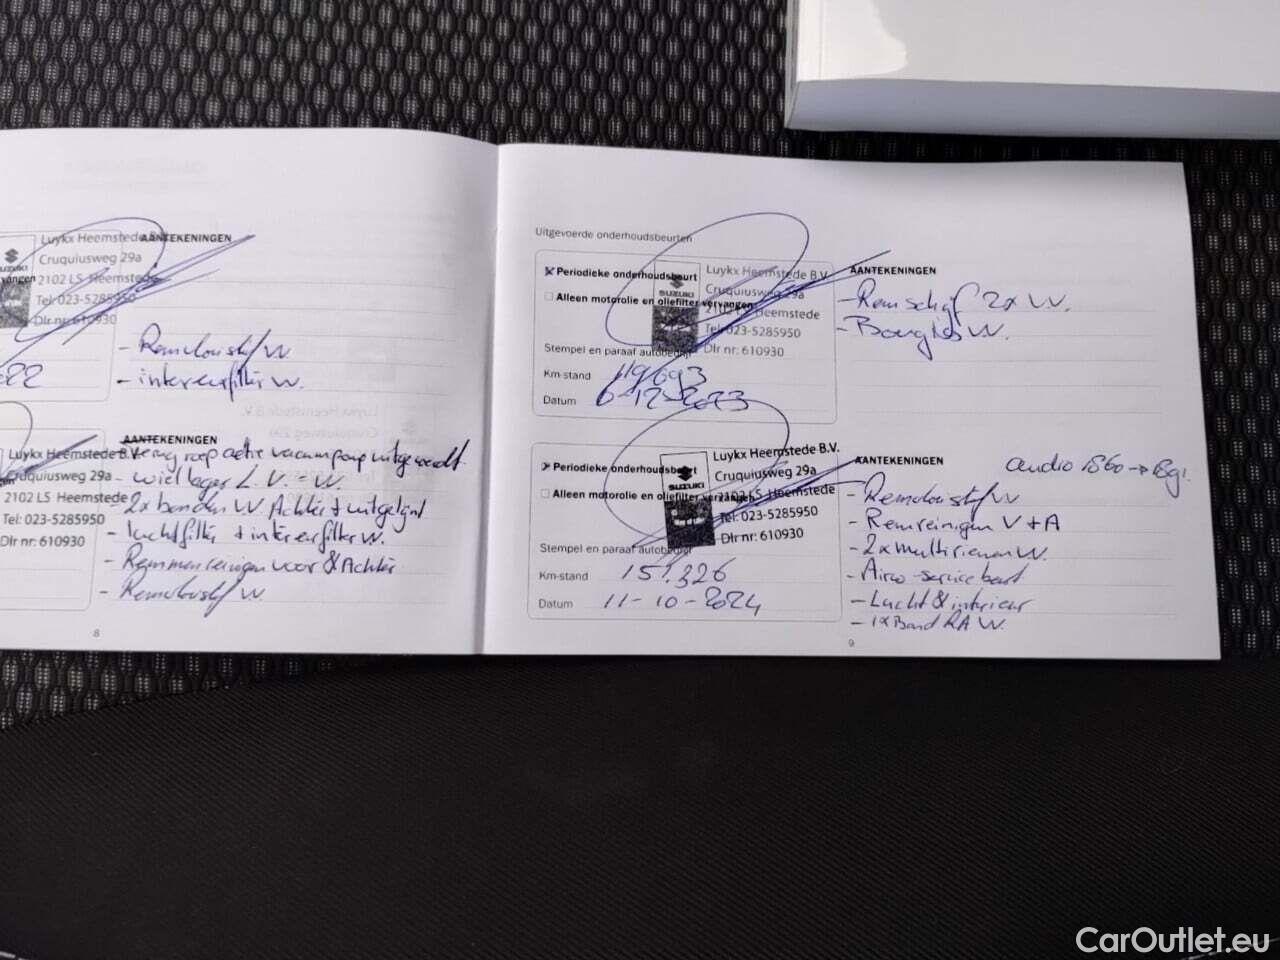 Luykx Heemstede B.V.
AANTEKENINGEN
Cruquiusweg 29a
SUZUKI
vangen
2102 LS Heemstede
Tel: 023-5285950
Dlr nr: 610930
- Remvloeistof W.
- interieurfilter W.
22
AANTEKENINGEN
Luykx Heemstede B.V.
Cruquiusweg 29a
2102 LS Heemstede
Tel: 023-5285950
Dlr nr: 610930
- terugroepactie vacuumpomp uitgevoerd.
- wiellager L.V. - W.
- 2x banden W Achter + uitgelijnt
- luchtfilter + interieurfilter W.
- Remmen reinigen voor & Achter
- Remvloeistof W
8
Uitgevoerde onderhoudsbeurten
Periodieke onderhoudsbeurt
Alleen motorolie en oliefilter vervangen
SUZUKI
Luykx Heemstede B.V.
Cruquiusweg 29a
2102 LS Heemstede
Tel: 023-5285950
Dlr nr: 610930
Stempel en paraaf autobedrijf
Km-stand 119.693
Datum 6-12-2023
AANTEKENINGEN
- Remschijf 2x W.
- Bougies W.
Periodieke onderhoudsbeurt
Alleen motorolie en oliefilter vervangen
SUZUKI
Luykx Heemstede B.V.
Cruquiusweg 29a
2102 LS Heemstede
Tel: 023-5285950
Dlr nr: 610930
Stempel en paraaf autobedrijf
Km-stand 151.326
Datum 11-10-2024
AANTEKENINGEN
audio
- Remvloeistof W
- Remreinigen V + A
- 2x multiriemen W.
- Airco-servicebeurt
- Lucht & interieur
- 1x Band RA W.
9
CarOutlet.eu